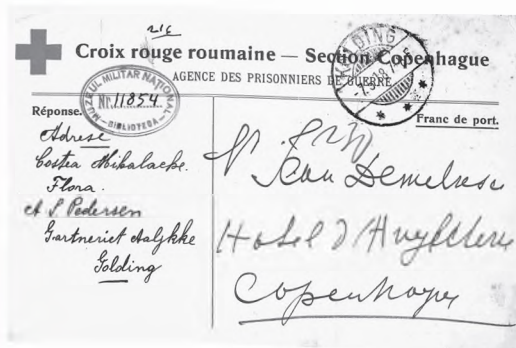 216
Croix rouge roumaine — Section Copenhague
AGENCE DES PRISONNIERS DE GUERRE
KOLDING
MUZEUL MILITAR NATIONAL
Nr. 11854
BIBLIOTECA
Réponse.
Franc de port.
Adrese
Costea Mihalache
Flora.
A S Pedersen
Gartneriet Aaljkke
Golding
Jean Demetrescu
Hotel d'Angleterre
Copenhague